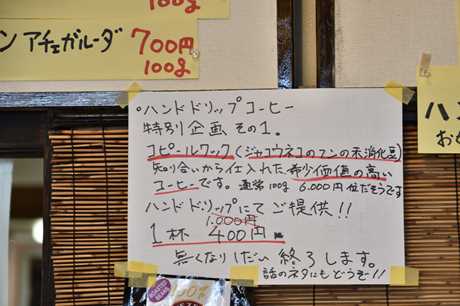 100g
ン アチェガルーダ
700円
100g
○ハンドドリップコーヒー
特別企画 その1。
コピ・ルワック(ジャコウネコのフンの未消化豆)
知り合いから仕入れた希少価値の高い
コーヒーです。通常100g 6,000円位だそうです
ハンドドリップにてご提供!!
1,000円
1杯 400円
無くなりしだい終了します。
話のネタにもどうぞ!!
ハン
おめ